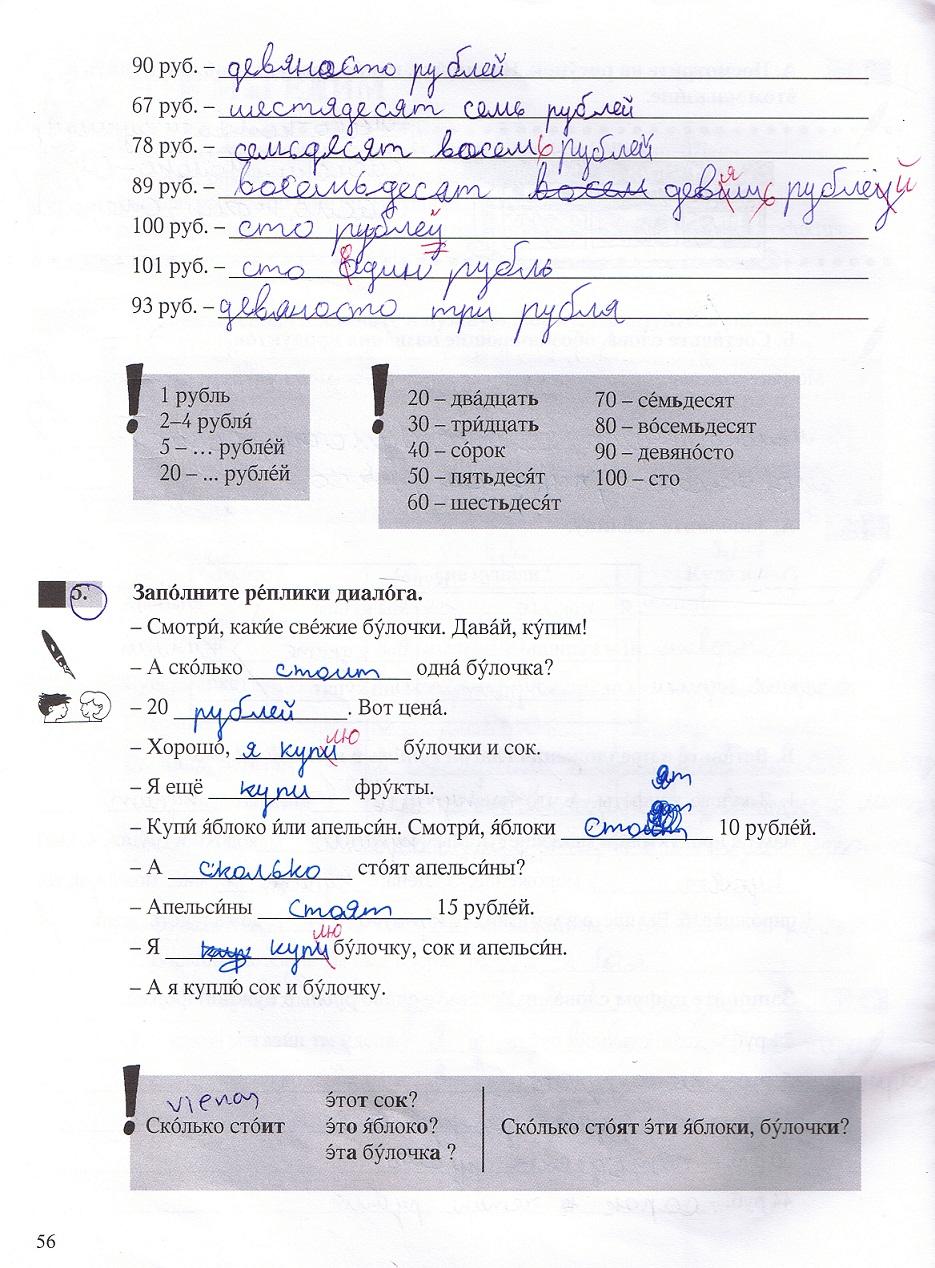 90 руб. – девяносто рублей
67 руб. – шестядесят семь рублей
78 руб. – семьдесят восемь рублей
89 руб. – восемьдесят восем девять рублей
100 руб. – сто рублей
101 руб. – сто один рубль
93 руб. – девяносто три рубля
! 1 рубль
2–4 рубля́
5 – ... рубле́й
20 – ... рубле́й
! 20 – два́дцать 70 – се́мьдесят
30 – три́дцать 80 – во́семьдесят
40 – со́рок 90 – девяно́сто
50 – пятьдеся́т 100 – сто
60 – шестьдеся́т
5. Запо́лните ре́плики диало́га.
– Смотри́, каки́е све́жие бу́лочки. Дава́й, ку́пим!
– А ско́лько стоит одна́ бу́лочка?
– 20 рублей. Вот цена́.
– Хорошо́, я куплю бу́лочки и сок.
– Я ещё купи фру́кты.
– Купи́ я́блоко и́ли апельси́н. Смотри́, я́блоки стоят 10 рубле́й.
– А сколько сто́ят апельси́ны?
– Апельси́ны стоят 15 рубле́й.
– Я куплю бу́лочку, сок и апельси́н.
– А я куплю́ сок и бу́лочку.
! vienas э́тот сок?
Ско́лько сто́ит э́то я́блоко? Ско́лько сто́ят э́ти я́блоки, бу́лочки?
э́та бу́лочка ?
56